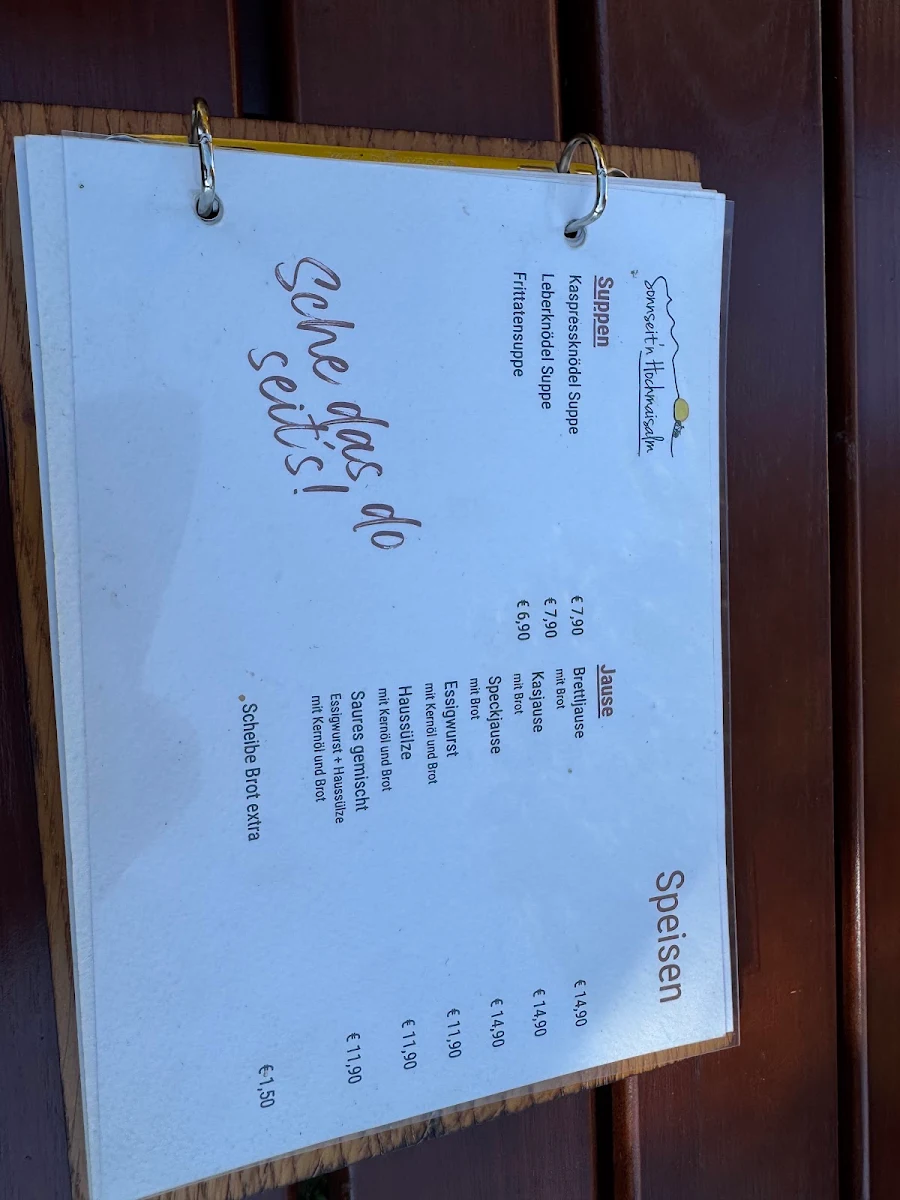 Sonnseit'n Hochmaisalm
Speisen
Suppen
Kaspressknödel Suppe € 7,90
Leberknödel Suppe € 7,90
Frittatensuppe € 6,90
Sche das do
seit's!
Jause
Brettljause € 14,90
mit Brot
Kasjause € 14,90
mit Brot
Speckjause € 14,90
mit Brot
Essigwurst € 11,90
mit Kernöl und Brot
Haussülze € 11,90
mit Kernöl und Brot
Saures gemischt € 11,90
Essigwurst + Haussülze
mit Kernöl und Brot
Scheibe Brot extra € 1,50